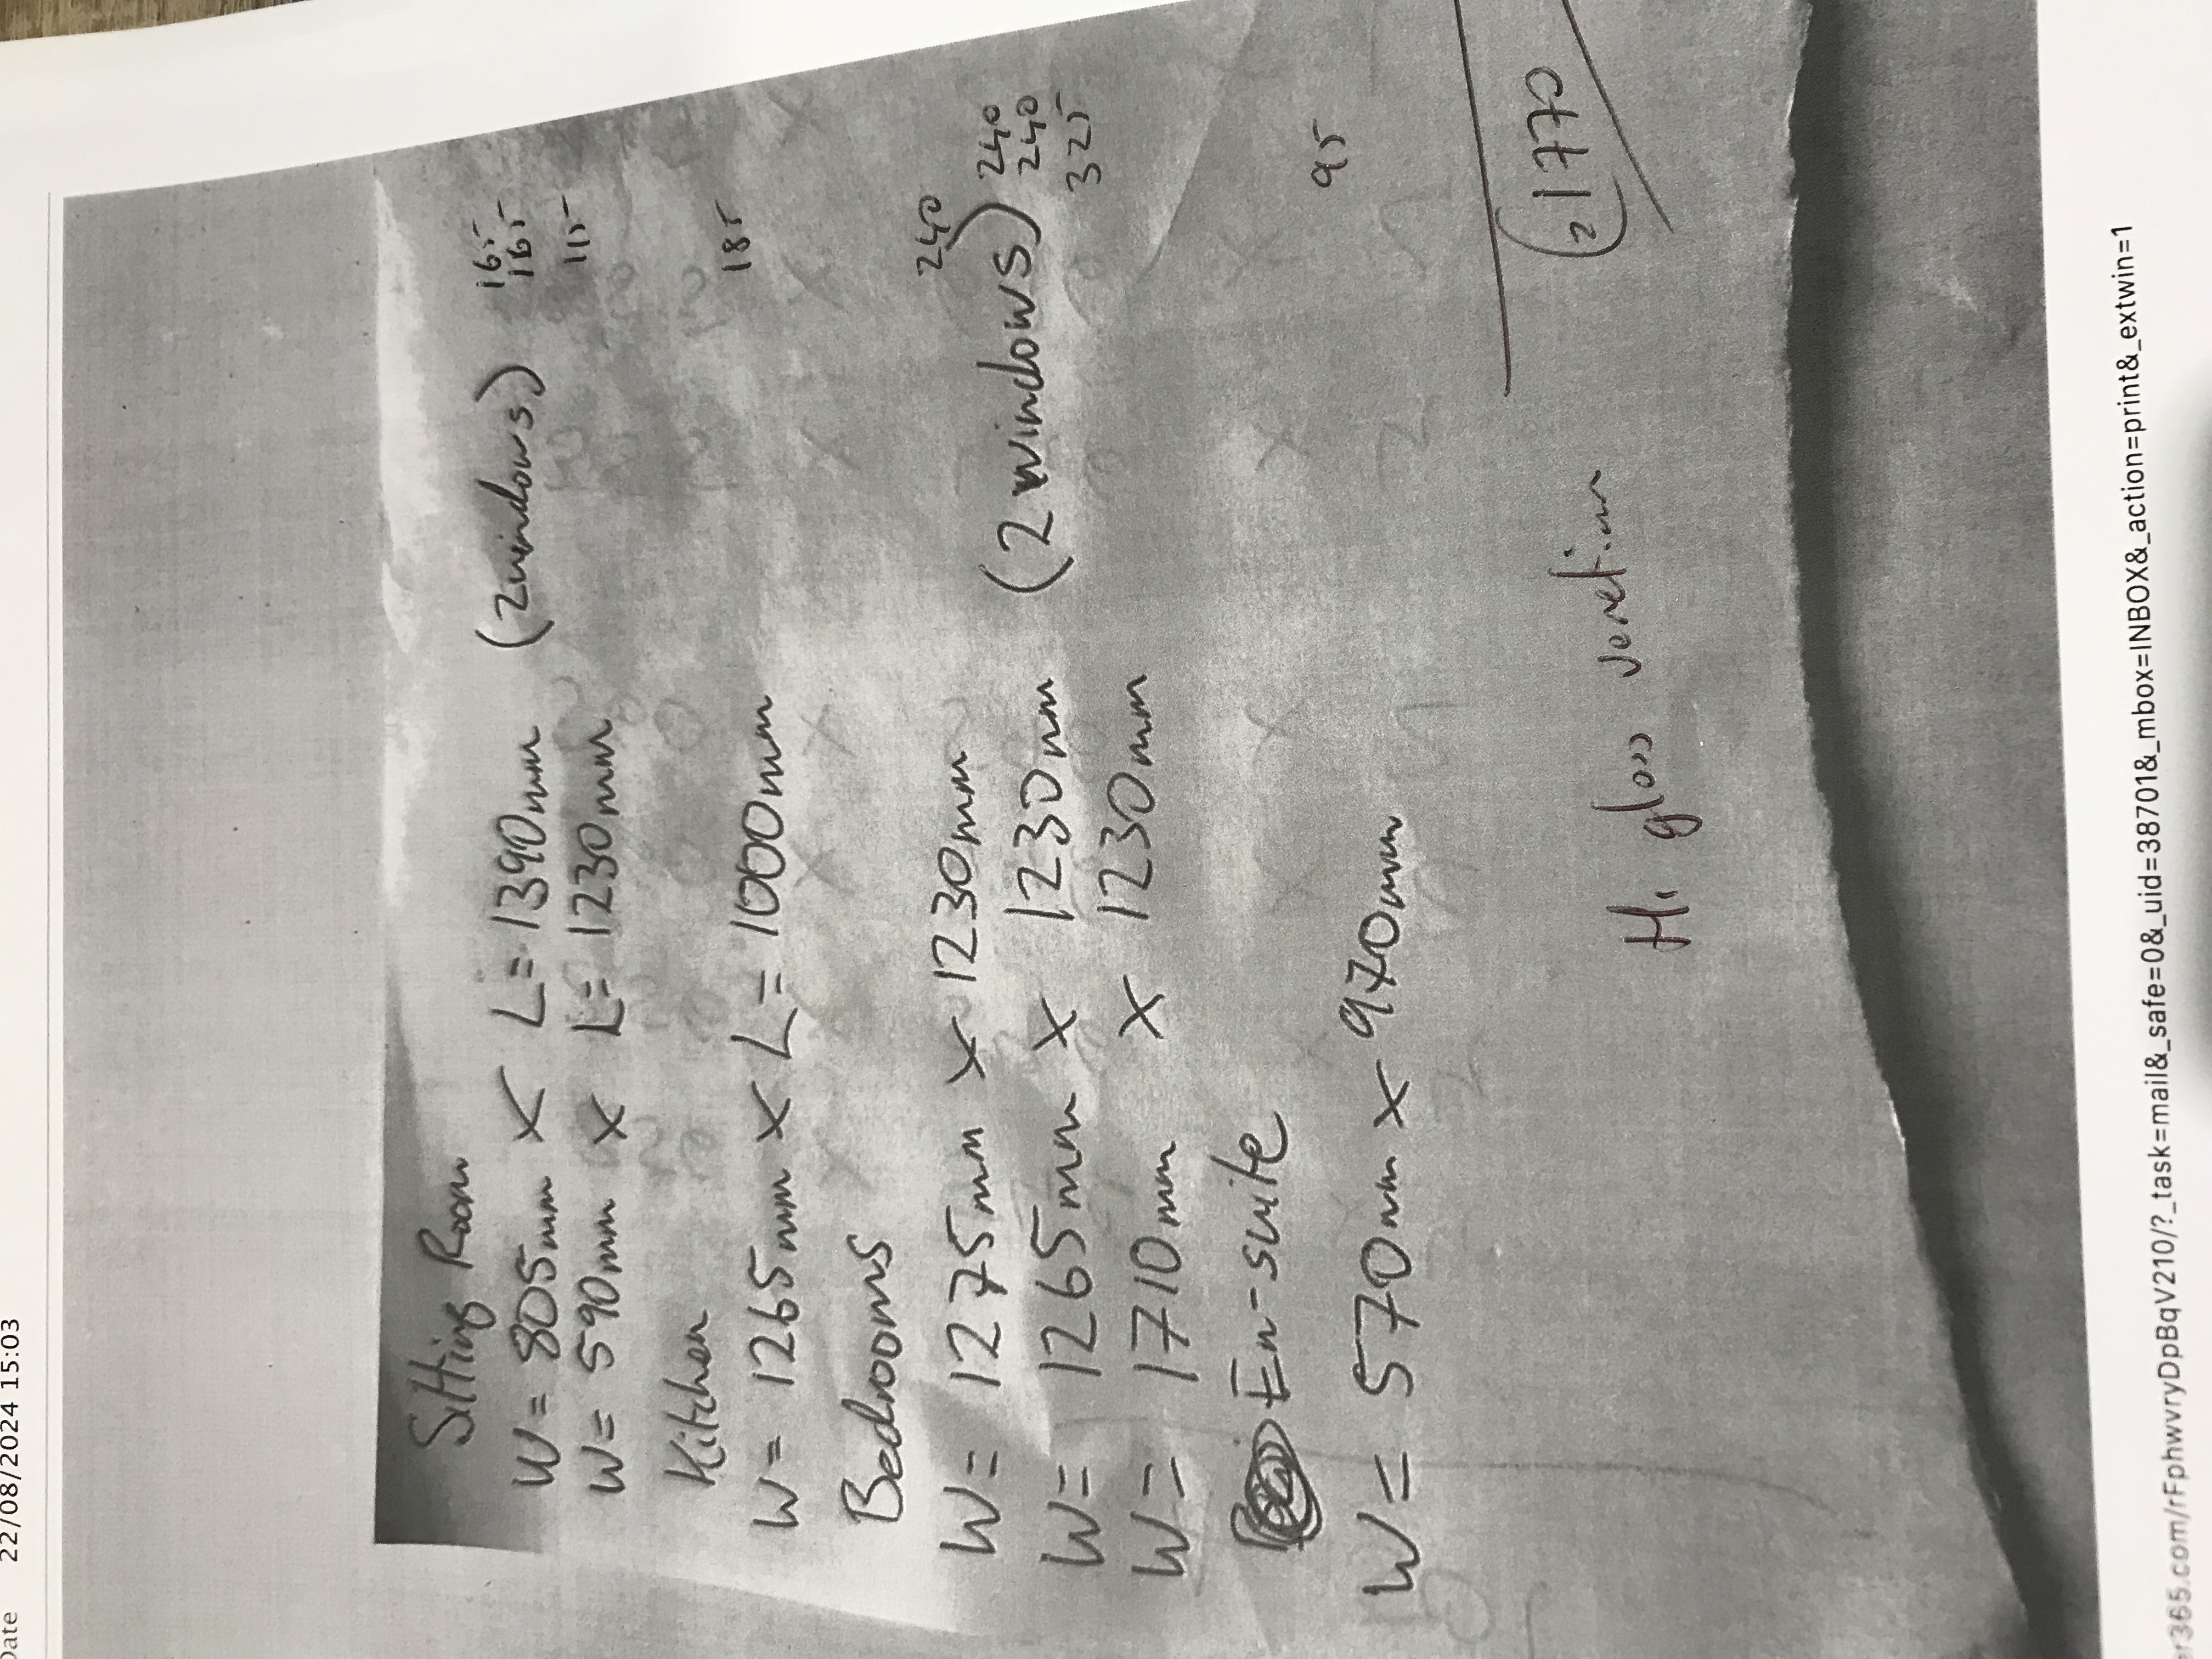 Date 22/08/2024 15:03
Sitting Room
W = 805mm X L = 1390mm (2windows) 165
165
W = 590mm X L = 1230mm 115
Kitchen
W = 1265mm X L = 1000mm 185
Bedrooms
W = 1275mm X 1230mm 240
W = 1265mm X 1230mm (2 windows) 240
240
W = 1710mm X 1230mm 325
En-suite
W = 570mm X 970mm 95
2 1770
Hi gloss
r365.com/rFphwvryDpBqV210/?_task=mail&_safe=0&_uid=38701&_mbox=INBOX&_action=print&_extwin=1